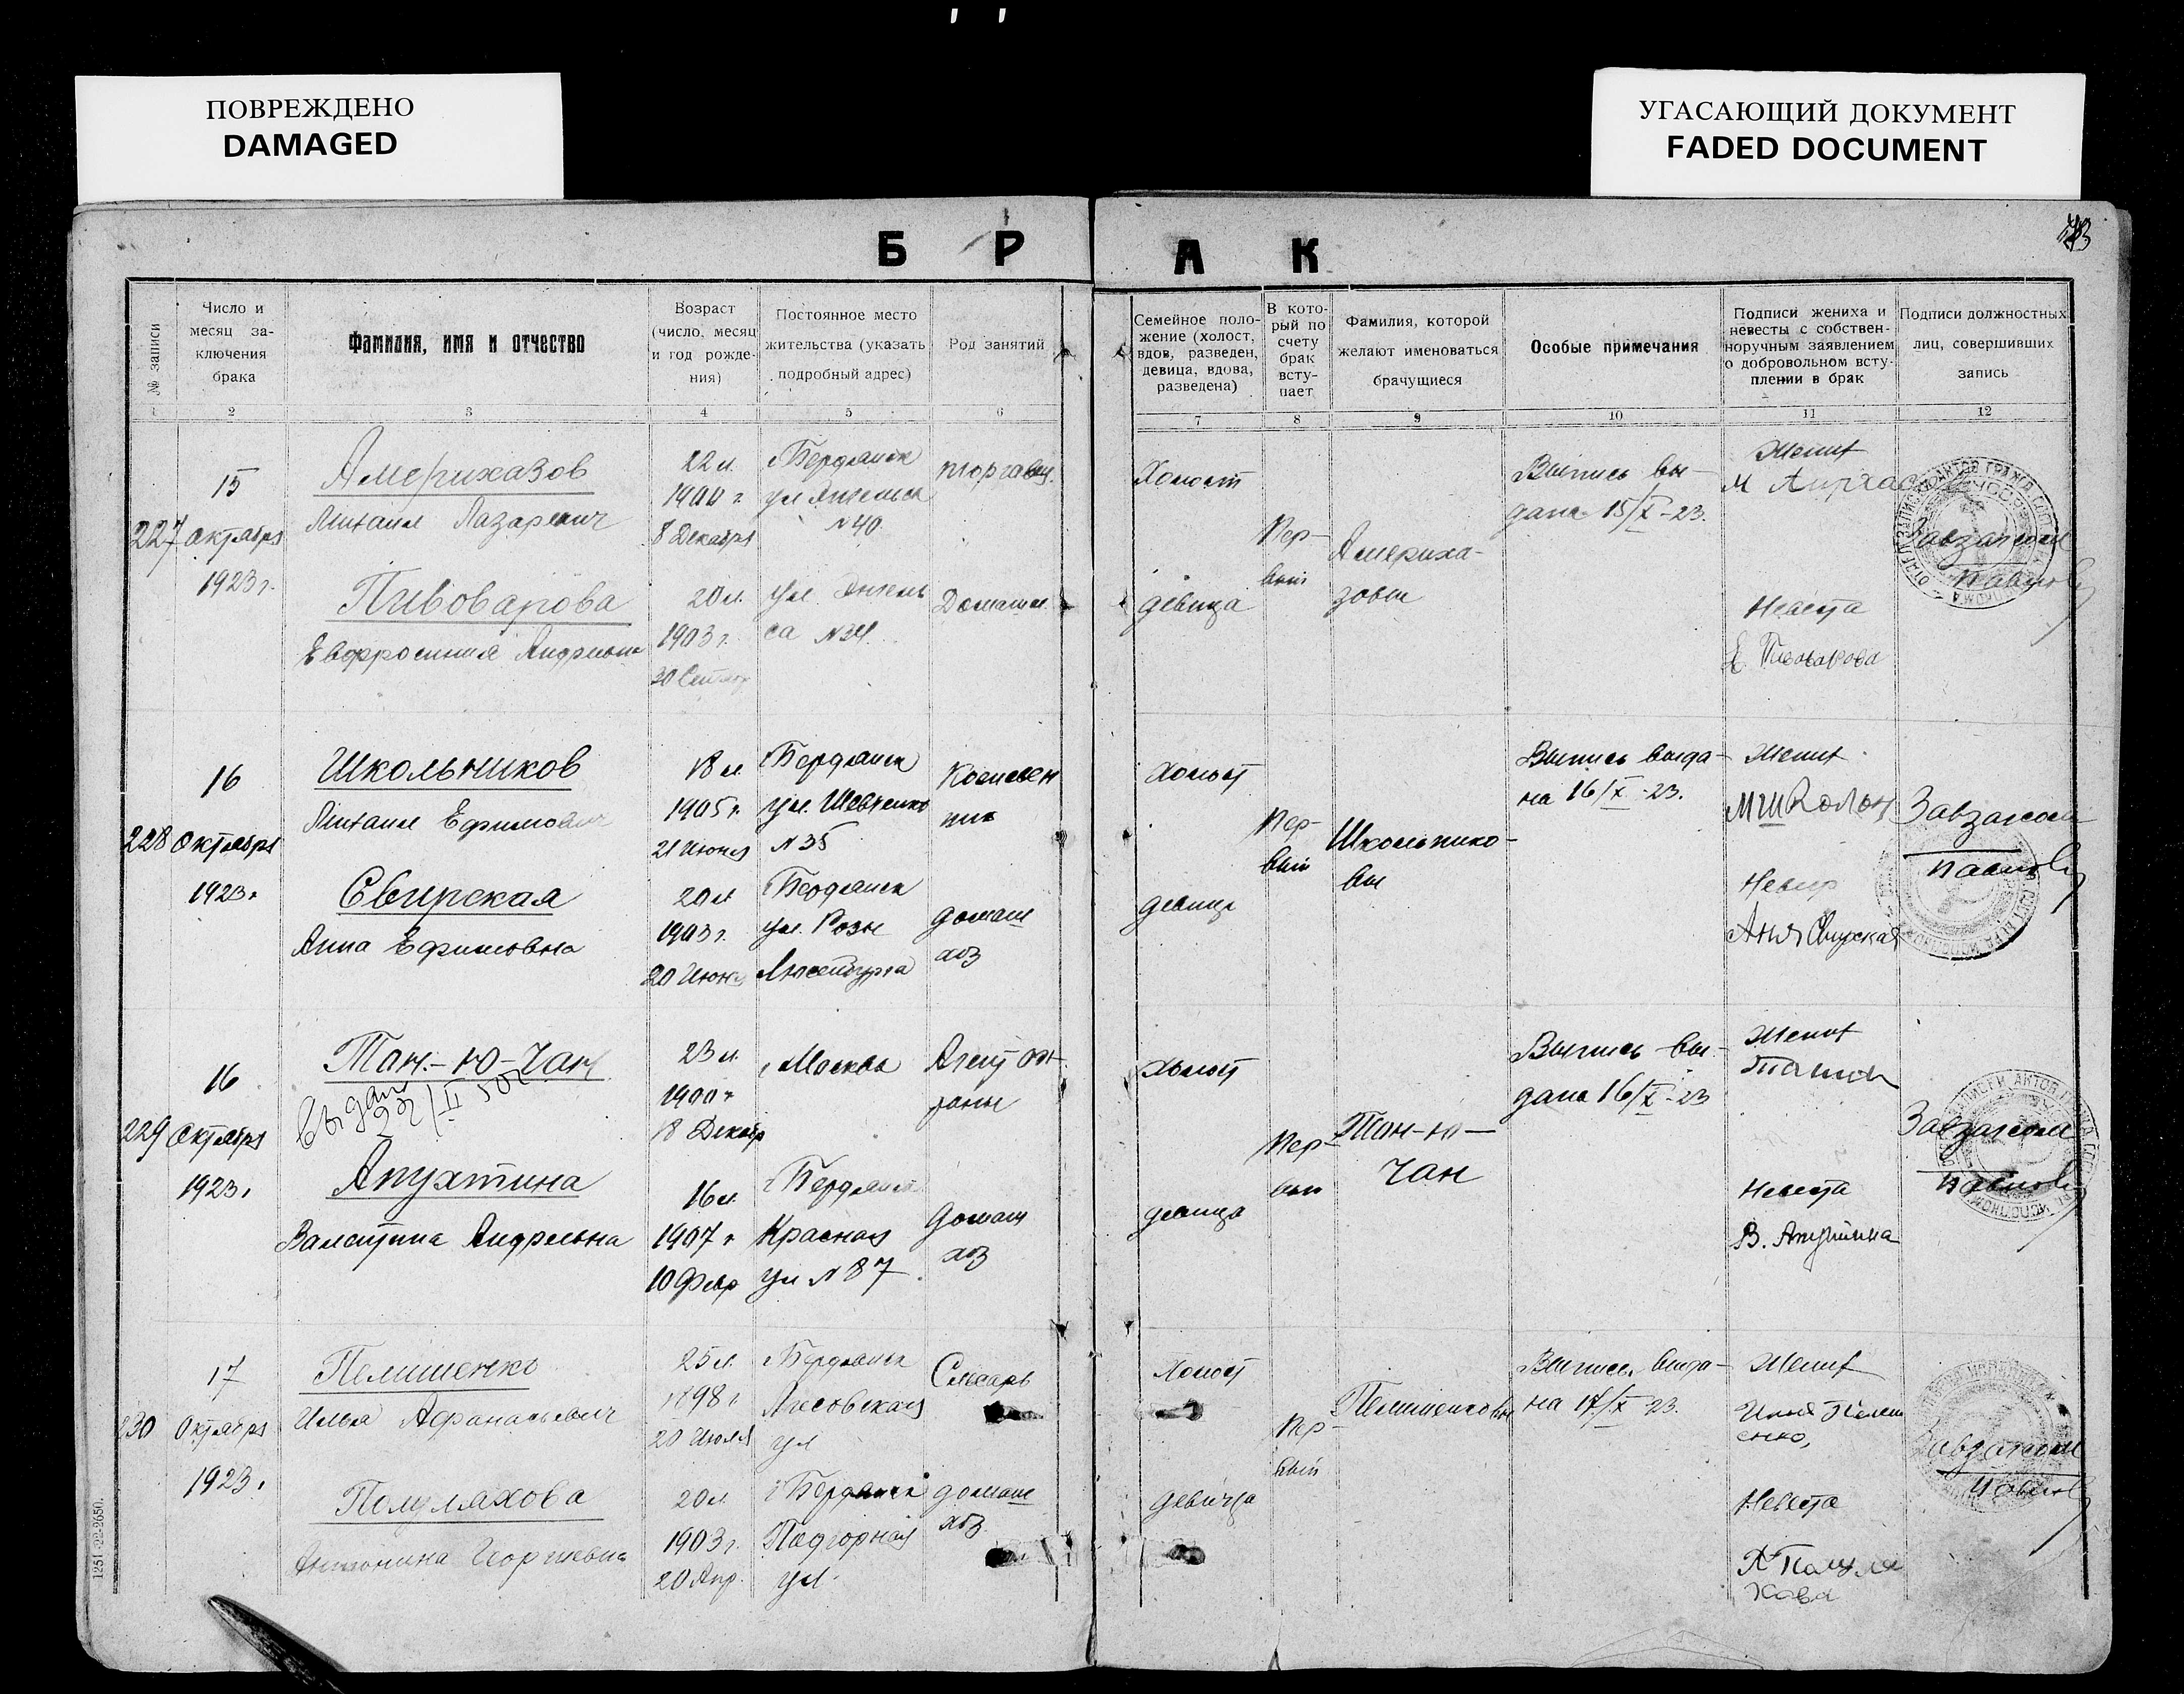 ПОВРЕЖДЕНО
DAMAGED
УГАСАЮЩИЙ ДОКУМЕНТ
FADED DOCUMENT
Б Р А К
№ записи
Число и
месяц за-
ключения
брака
Фамилия, имя и отчество
Возраст
(число, месяц
и год рожде-
ния)
Постоянное место
жительства (указать
подробный адрес)
Род занятий
Семейное поло-
жение (холост,
вдов, разведен,
девица, вдова,
разведена)
В кото-
рый по
счету
брак
всту-
пает
Фамилия, которой
желают именоваться
брачущиеся
Особые примечания
Подписи жениха и
невесты с собствен-
норучным заявлением
о добровольном всту-
плении в брак
Подписи должностных
лиц, совершивших
запись
1 2 3 4 5 6 7 8 9 10 11 12
227
15
октября
1923 г.
Америхазов
Михаил Лазаревич
22 л.
1900 г.
8 Декабря
Бердянск
ул Энгельса
№ 40
торговец
Холост
Пер-
вый
Америха-
зовы
Выпись вы-
дана 15/X-23.
Жених
Завзагсом
Пивоварова
Евфросиния Андреевна
20 л.
1903 г.
20 Сентяб
ул Энгель
са № 34
Домашн.
девица
Невеста
Е Пивоварова
228
16
Октября
1923 г
Школьников
Михаил Ефимович
18 л.
1905 г.
21 Июня
Бердянск
ул. Шевченко
№ 35
Кожевен
ник
холост
Пер-
вый
Школьнико-
вы
Выпись выда-
на 16/X-23.
Жених
Завзагсом
Свирская
Анна Ефимовна
20 л
1903 г.
20 Июня
Бердянск
ул. Розы
Люксембурга
домаш
хоз
девица
Невеста
Аня Свирская
229
16
Октября
1923 г
Тан.-Ю-Чан
выдан
23 л.
1900 г
18 Декабр
Москва
Агент ох-
раны
холост
Пер-
вый
Тан-ю-
Чан
Выпись вы-
дана 16/X-23
Жених
Завзагсом
Апухтина
Валентина Андреевна
16 л.
1907 г
10 Февр
Бердянск
Красная
ул № 87
Домаш
хоз
девица
Невеста
В. Апухтина
230
17
Октября
1923 г
Пелишенко
Илья Афанасьевич
25 л.
1898 г
20 Июля
Бердянск
Лисовская
ул
Слесарь
Холост
Пер-
вый
Пелишенковы
Выпись выда-
на 17/X-23.
Жених
Завзагсом
Полуляхова
Антонина Георгиевна
20 л.
1903 г.
20 Апр.
Бердянск
Подгорная
ул.
домаш
хоз.
девица
Невеста
А Полуля
хова
1251-22-2650.